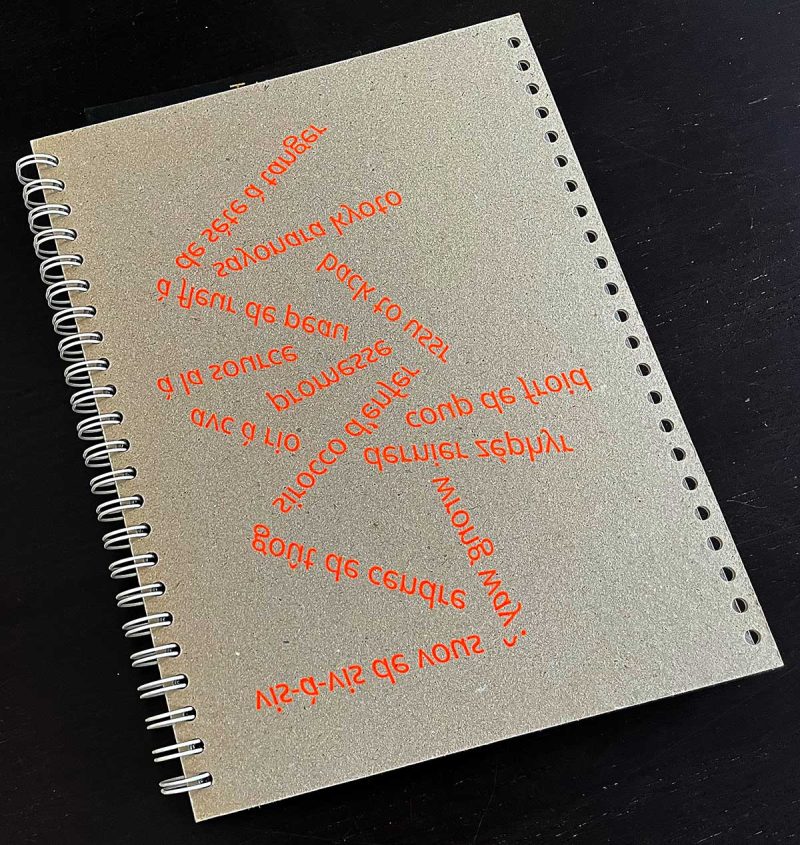 de sète à tanger
sayonara kyoto
back to ussr
à fleur de peau
à la source
promesse
avc à rio
sirocco d'enfer
coup de froid
dernier zéphyr
wrong way
goût de cendre
vis-à-vis de vous